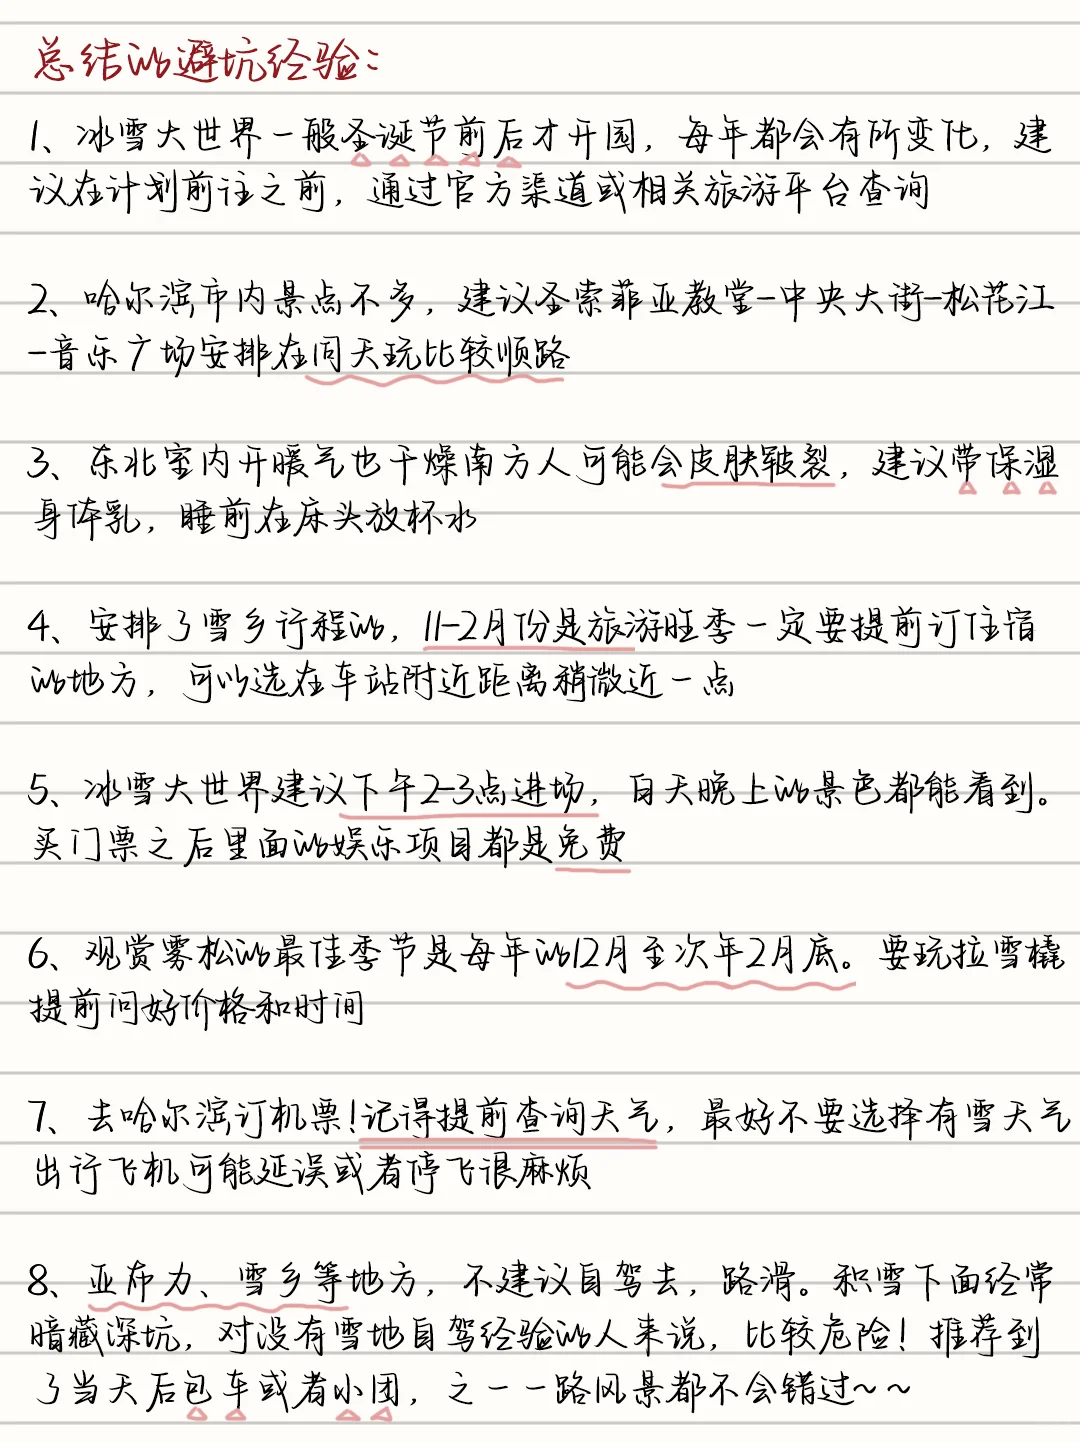 总结的避坑经验：
1、冰雪大世界一般圣诞节前后才开园，每年都会有所变化，建
议在计划前往之前，通过官方渠道或相关旅游平台查询
2、哈尔滨市内景点不多，建议圣索菲亚教堂-中央大街-松花江
-音乐广场安排在同天玩比较顺路
3、东北室内开暖气也干燥南方人可能会皮肤皲裂，建议带保湿
身体乳，睡前在床头放杯水
4、安排了雪乡行程的，11-2月份是旅游旺季一定要提前订住宿
的地方，可以选在车站附近距离稍微近一点
5、冰雪大世界建议下午2-3点进场，白天晚上的景色都能看到。
买门票之后里面的娱乐项目都是免费
6、观赏雾松的最佳季节是每年的12月至次年2月底。要玩拉雪橇
提前问好价格和时间
7、去哈尔滨订机票！记得提前查询天气，最好不要选择有雪天气
出行飞机可能延误或者停飞很麻烦
8、亚布力、雪乡等地方，不建议自驾去，路滑。积雪下面经常
暗藏深坑，对没有雪地自驾经验的人来说，比较危险！推荐到
了当天后包车或者小团，之一一路风景都不会错过~~